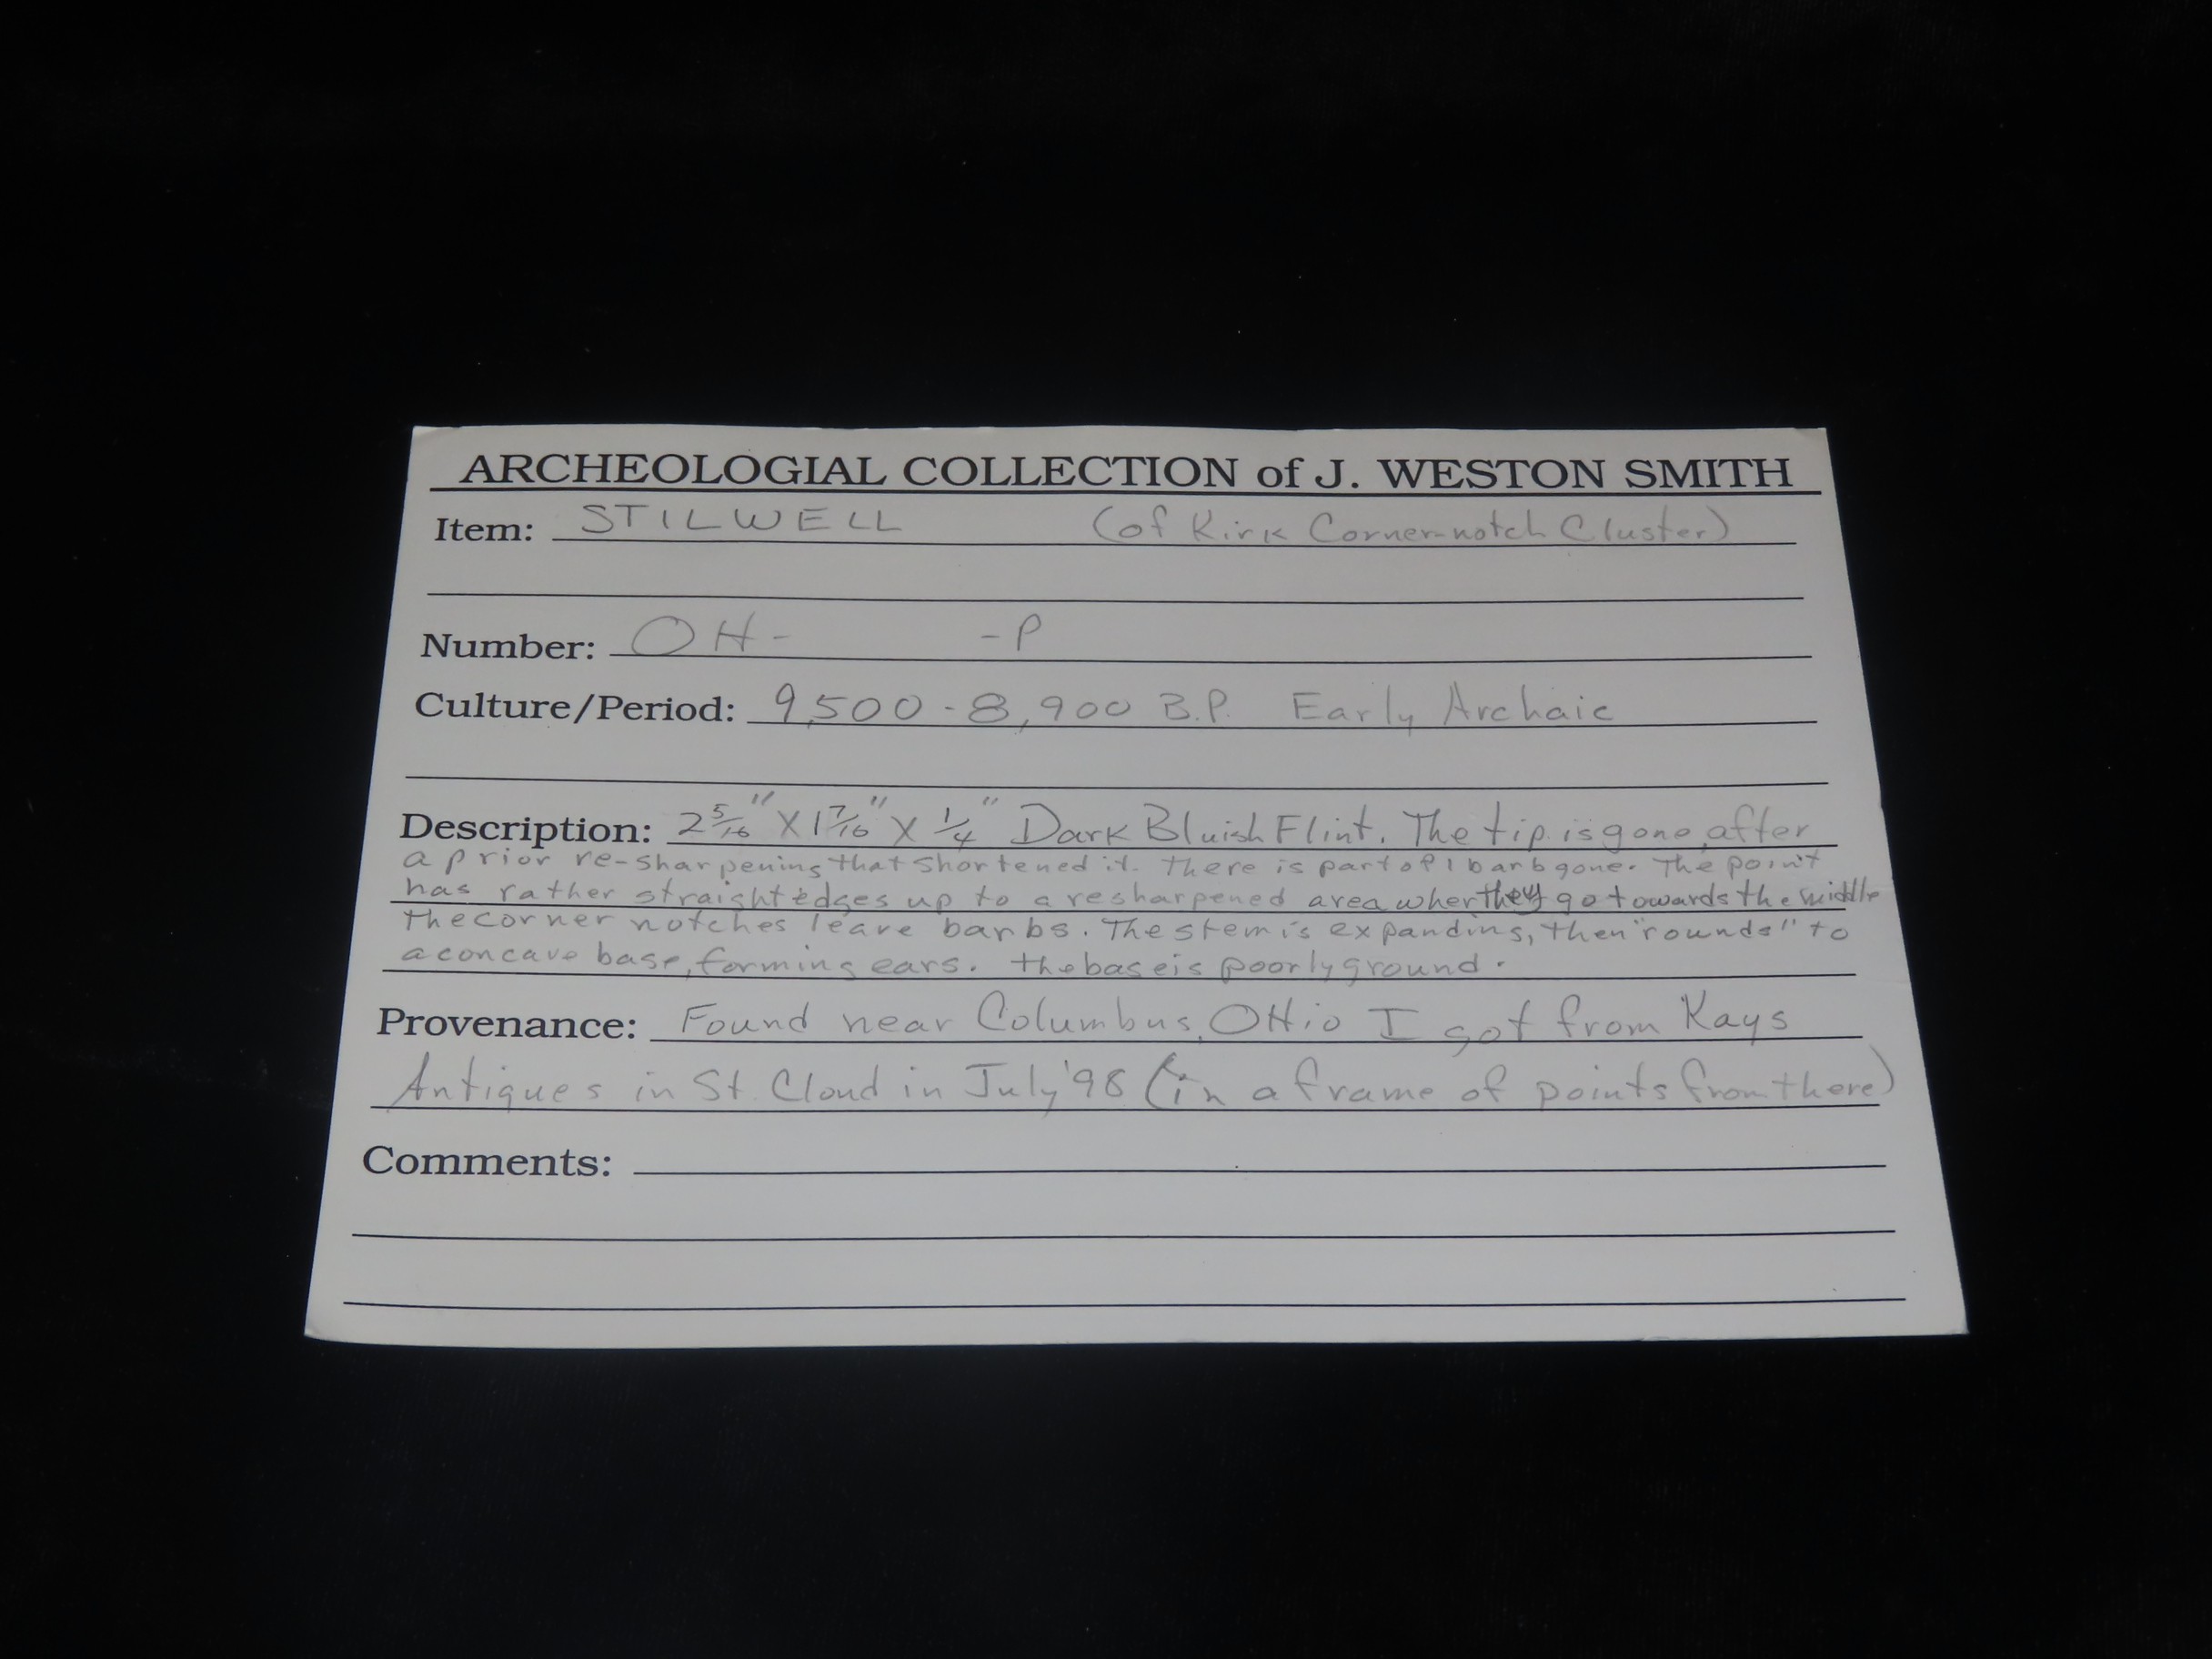 ARCHEOLOGIAL COLLECTION of J. WESTON SMITH
Item: STILWELL (of Kirk Corner-notch Cluster)
Number: OH- -P
Culture/Period: 9,500-8,900 B.P. Early Archaic
Description: 2 5/16" X 1 7/16" X 1/4" Dark Bluish Flint. The tip is gone, after
a prior re-sharpening that shortened it. There is part of 1 barb gone. The point
has rather straight edges up to a resharpened area wher they go towards the middle
The corner notches leave barbs. The stem is expanding, then "rounds" to
a concave base, forming ears. the base is poorly ground.
Provenance: Found near Columbus, OHio I got from Kays
Antiques in St. Cloud in July '98 (in a frame of points from there)
Comments: